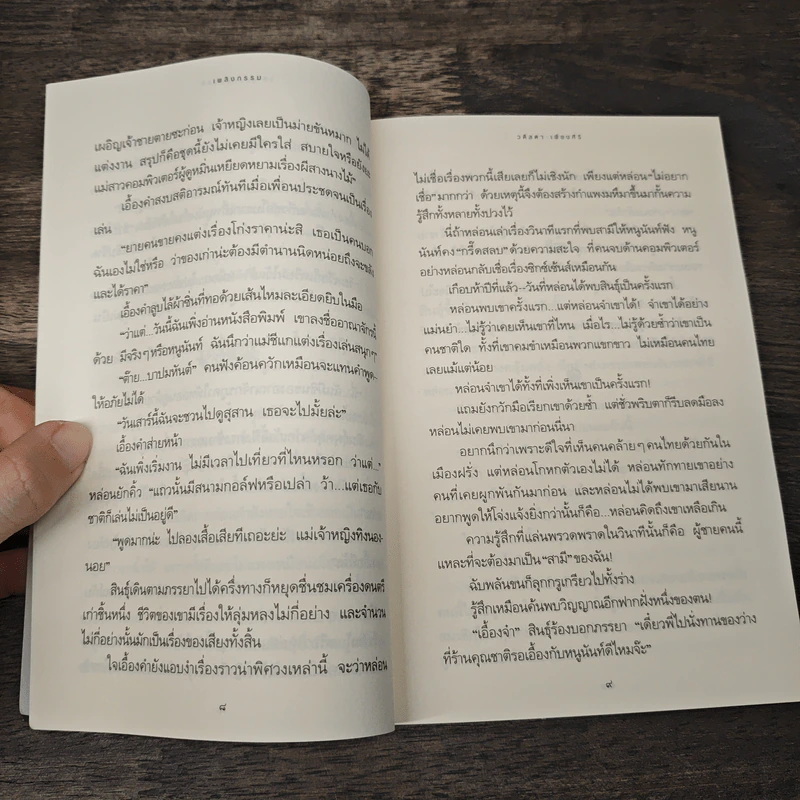 เพลิงกรรม
เผอิญเจ้าชายตายซะก่อน เจ้าหญิงเลยเป็นม่ายขันหมาก ไม่ได้
แต่งงาน สรุปก็คือชุดนี้ยังไม่เคยมีใครใส่ สบายใจหรือยังคะ
แม่สาวคอมพิวเตอร์ผู้ดูหมิ่นเหยียดหยามเรื่องผีสางนางไม้"
เอื้องคำสงบสติอารมณ์ทันทีเมื่อเพื่อนประชดจนเป็นเรื่อง
เล่น
"ยายคนขายคงแต่งเรื่องโก่งราคาน่ะสิ เธอเป็นคนบอก
ฉันเองไม่ใช่หรือ ว่าของเก่าน่ะต้องมีตำนานนิดหน่อยถึงจะขลัง
และได้ราคา"
เอื้องคำลูบไล้ผ้าซิ่นที่ทอด้วยเส้นไหมละเอียดยิบในมือ
"ว่าแต่...วันนี้ฉันเพิ่งอ่านหนังสือพิมพ์ เขาลงชื่ออาณาจักรนี้
ด้วย มีจริงๆหรือหนูนันท์ ฉันนึกว่าแม่ชีแกแต่งเรื่องเล่นสนุกๆ"
"ต๊าย...บาปมหันต์" คนฟังค้อนควักเหมือนจะแทนคำพูด--
ให้อภัยไม่ได้
"วันเสาร์นี้ฉันจะชวนไปดูสุสาน เธอจะไปมั้ยล่ะ"
เอื้องคำส่ายหน้า
"ฉันเพิ่งเริ่มงาน ไม่มีเวลาไปเที่ยวที่ไหนหรอก ว่าแต่..."
หล่อนยักคิ้ว "แถวนั้นมีสนามกอล์ฟหรือเปล่า ว้า...แต่เธอกับ
ชาติก็เล่นไม่เป็นอยู่ดี"
"พูดมากน่ะ ไปลองเสื้อเสียทีเถอะย่ะ แม่เจ้าหญิงทิงนอง-
นอย"
สินธุ์เดินตามภรรยาไปได้ครึ่งทางก็หยุดชื่นชมเครื่องดนตรี
เก่าชิ้นหนึ่ง ชีวิตของเขามีเรื่องให้ลุ่มหลงไม่กี่อย่าง และจำนวน
ไม่กี่อย่างนั้นมักเป็นเรื่องของเสียงทั้งสิ้น
ใจเอื้องคำยังแอบงำเรื่องราวน่าพิศวงเหล่านี้ จะว่าหล่อน
๘
ไม่เชื่อเรื่องพวกนี้เสียเลยก็ไม่เชิงนัก เพียงแต่หล่อน"ไม่อยาก
เชื่อ"มากกว่า ด้วยเหตุนี้จึงต้องสร้างกำแพงมหึมาขึ้นมากั้นความ
รู้สึกทั้งหลายทั้งปวงไว้
นี่ถ้าหล่อนเล่าเรื่องวินาทีแรกที่พบสามีให้หนูนันท์ฟัง หนู
นันท์คง"กรี๊ดสลบ"ด้วยความสะใจ ที่คนจบด้านคอมพิวเตอร์
อย่างหล่อนกลับเชื่อเรื่องซิกซ์เซ้นส์เหมือนกัน
เกือบห้าปีที่แล้ว--วันที่หล่อนได้พบสินธุ์เป็นครั้งแรก
หล่อนพบเขาครั้งแรก...แต่หล่อนจำเขาได้! จำเขาได้อย่าง
แม่นยำ...ไม่รู้ว่าเคยเห็นเขาที่ไหน เมื่อไร...ไม่รู้ด้วยซ้ำว่าเขาเป็น
คนชาติใด ทั้งที่เขาคมขำเหมือนพวกแขกขาว ไม่เหมือนคนไทย
เลยแม้แต่น้อย
หล่อนจำเขาได้ทั้งที่เพิ่งเห็นเขาเป็นครั้งแรก!
แถมยังกวักมือเรียกเขาด้วยซ้ำ แต่ชั่วพริบตาก็รีบลดมือลง
หล่อนไม่เคยพบเขามาก่อนนี่นา
อยากนึกว่าเพราะดีใจที่เห็นคนคล้ายๆคนไทยด้วยกันใน
เมืองฝรั่ง แต่หล่อนโกหกตัวเองไม่ได้ หล่อนทักทายเขาอย่าง
คนที่เคยผูกพันกันมาก่อน และหล่อนไม่ได้พบเขามาเสียนาน
อยากพูดให้โจ่งแจ้งยิ่งกว่านั้นก็คือ...หล่อนคิดถึงเขาเหลือเกิน
ความรู้สึกที่แล่นพรวดพราดในวินาทีนั้นก็คือ ผู้ชายคนนี้
แหละที่จะต้องมาเป็น"สามี"ของฉัน!
ฉับพลันขนก็ลุกกรูเกรียวไปทั้งร่าง
รู้สึกเหมือนค้นพบวิญญาณอีกฟากฝั่งหนึ่งของตน!
"เอื้องจ๋า" สินธุ์ร้องบอกภรรยา "เดี๋ยวพี่ไปนั่งทานของว่าง
ที่ร้านคุณชาติรอเอื้องกับหนูนันท์ดีไหมจ๊ะ"
๙